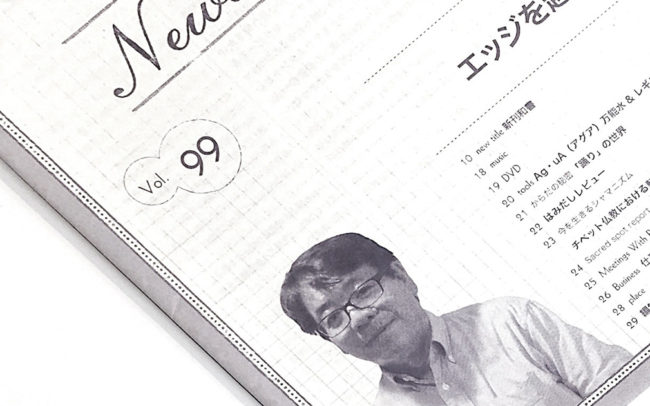 News
Vol. 99
エッジを
10 new title 新刊和書
18 music
19 DVD
20 tools Ag・uA（アグア）万能水 & レギ
21 からだの秘密「踊り」の世界
22 はみだしレビュー
23 今を生きるシャーマニズム
チベット仏教における
24 Sacred spot report
25 Meetings With
26 Business
28 place
29